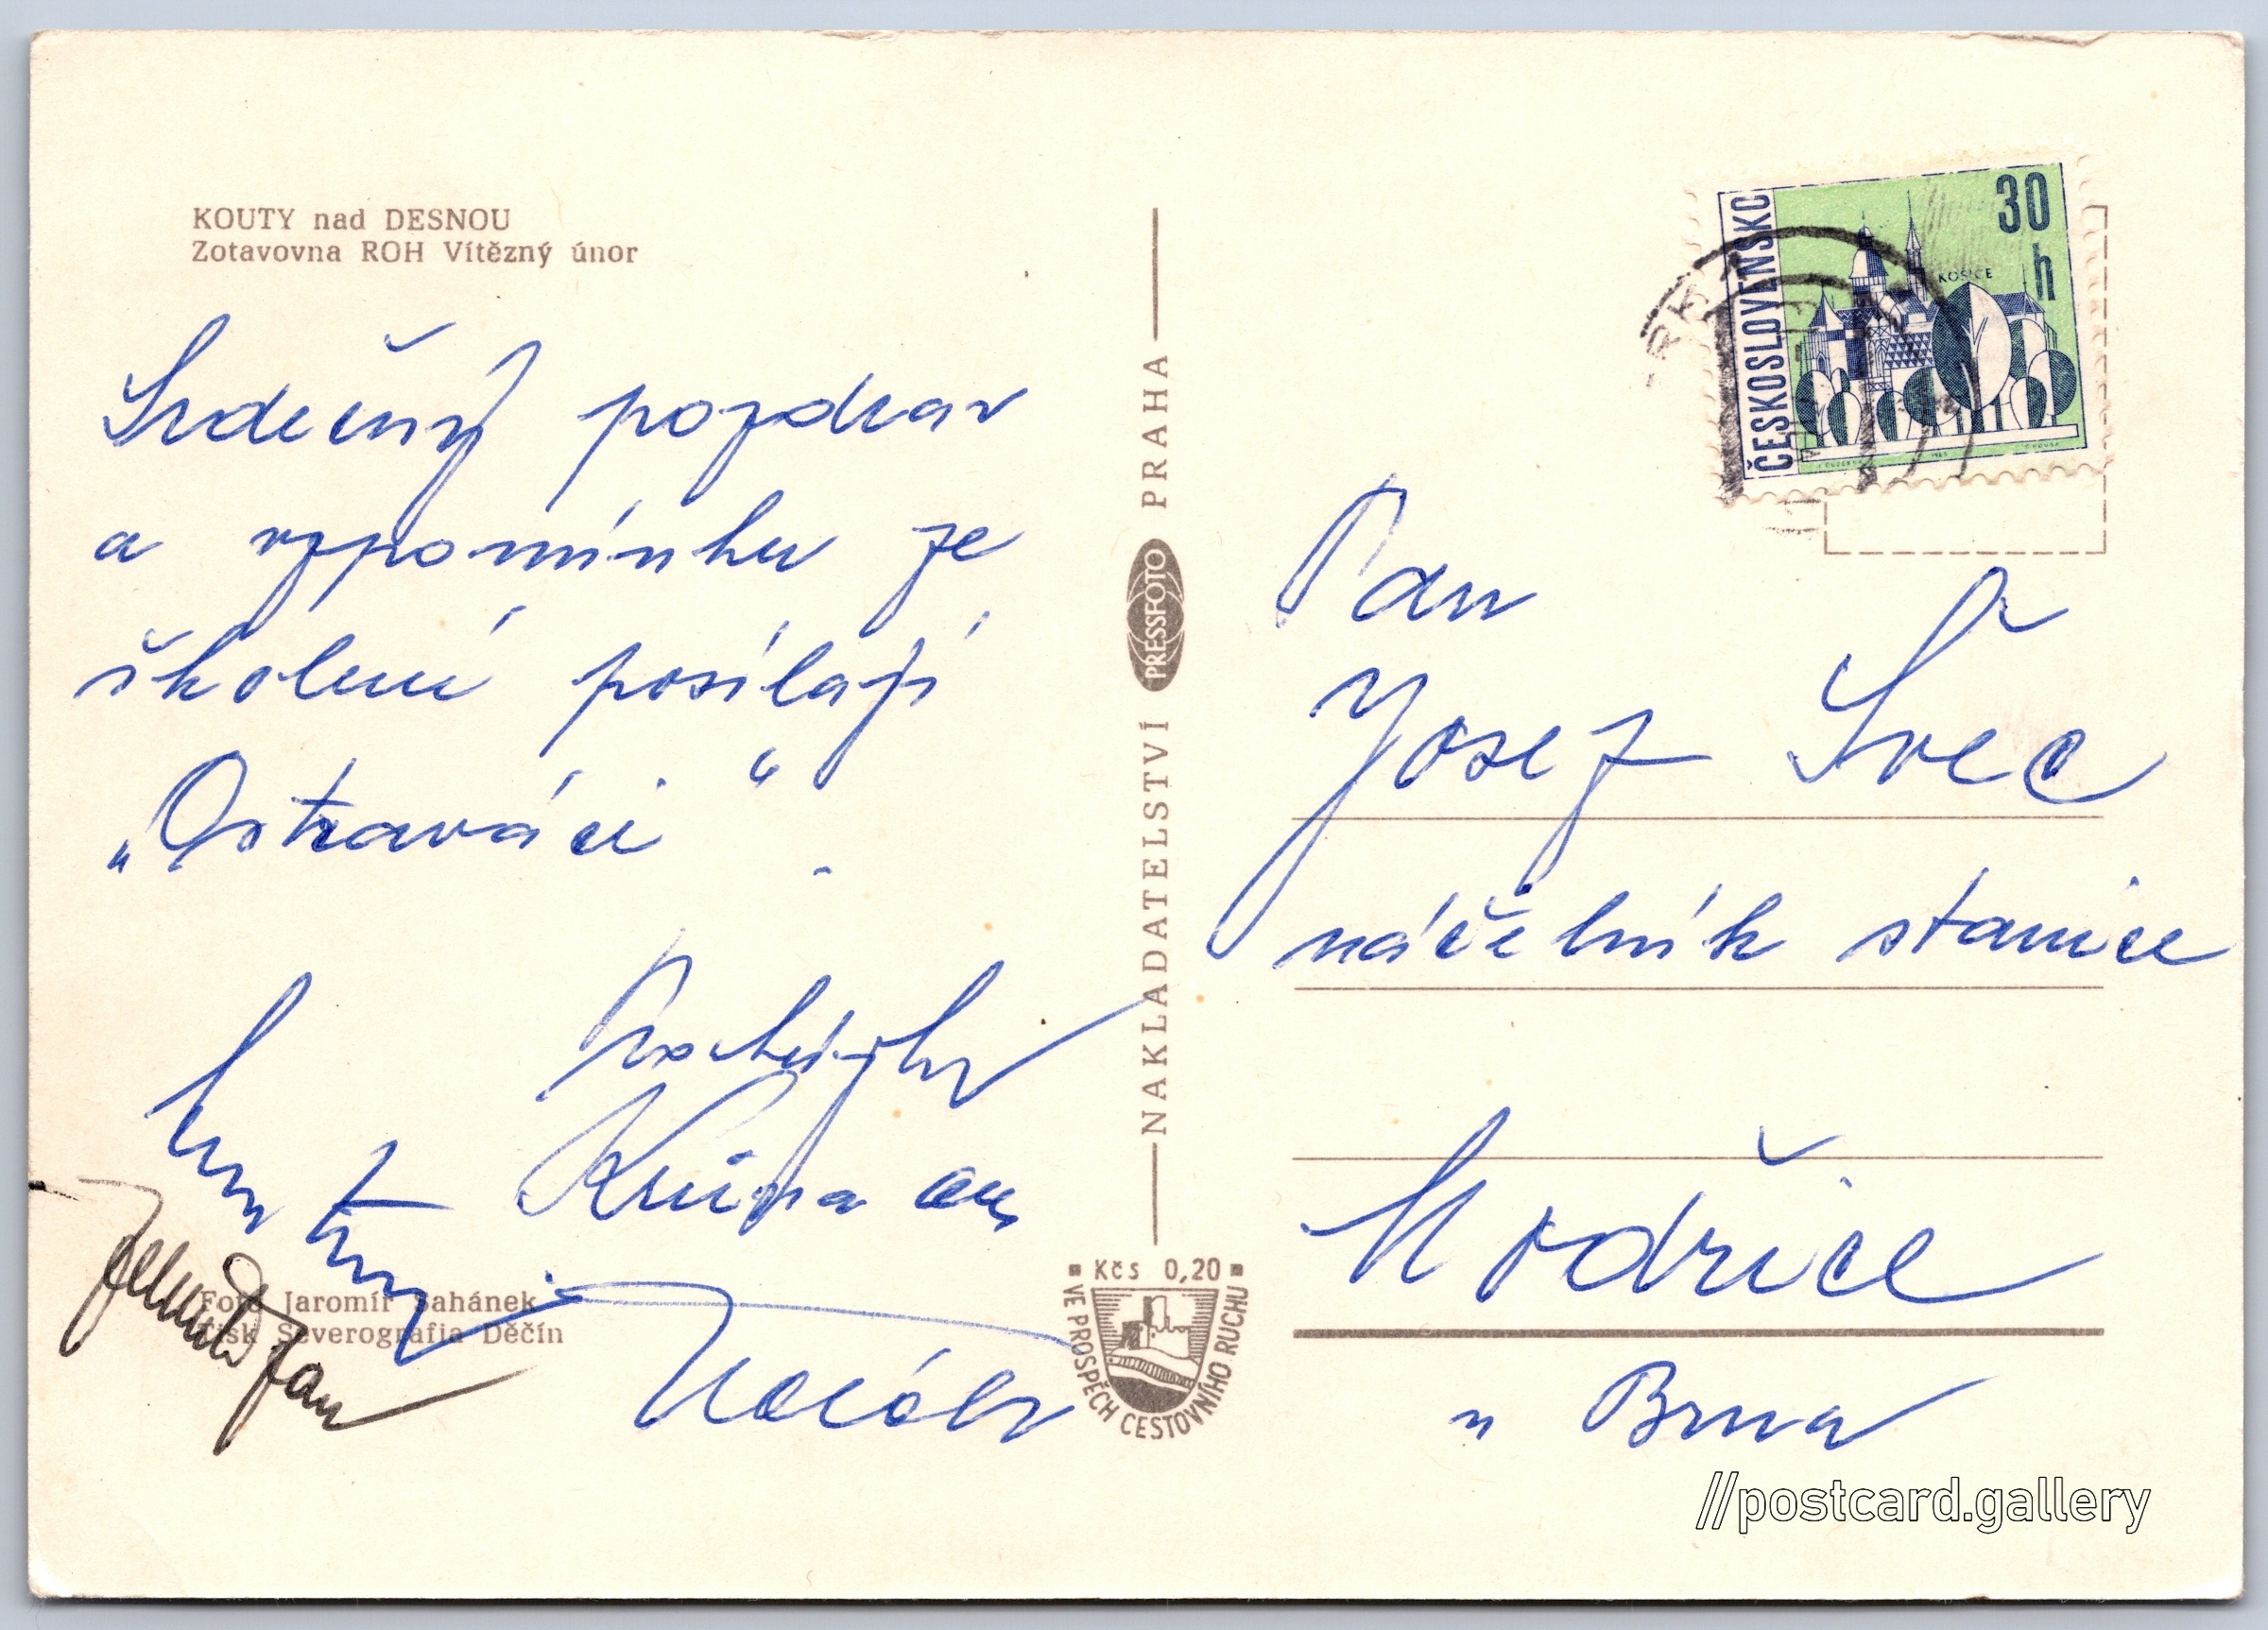 KOUTY nad DESNOU
Zotavovna ROH Vítězný únor
Srdečný pozdrav
a vzpomínku ze
školení posílají
„Ostraváci“.
Jan
Foto Jaromír Sahánek
Tisk Severografia Děčín
NAKLADATELSTVÍ PRESSFOTO PRAHA
Kčs 0,20
VE PROSPĚCH CESTOVNÍHO RUCHU
ČESKOSLOVENSKO
30 h
KOŠICE
Pan
Josef Švec
náčelník stanice
Modřice
u Brna
//postcard.gallery